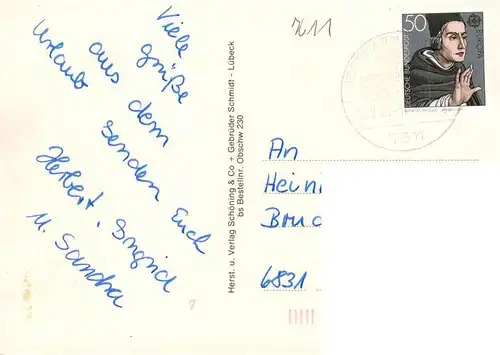 7611
Viele
Grüße
aus dem
Urlaub
senden Euch
Herbert, Ingrid
u. Sandra
Herst. u. Verlag Schöning & Co + Gebrüder Schmidt - Lübeck
bs Bestellnr. Obschw 230
50
DEUTSCHE BUNDESPOST
EUROPA
7611
An
Hein
Bruc
6831